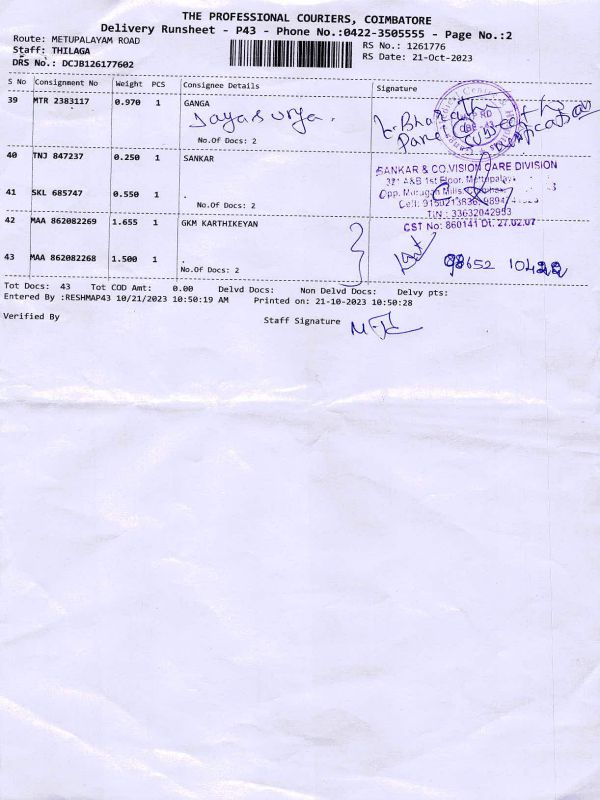 THE PROFESSIONAL COURIERS, COIMBATORE
Delivery Runsheet - P43 - Phone No.:0422-3505555 - Page No.:2
Route: METUPALAYAM ROAD
RS No.: 1261776
Staff: THILAGA
RS Date: 21-Oct-2023
DRS No.: DCJB126177602
S No Consignment No Weight PCS Consignee Details Signature
39 MTR 2383117 0.970 1 GANGA
Jayasurya.
No.Of Docs: 2
40 TNJ 847237 0.250 1 SANKAR
SANKAR & CO.VISION CARE DIVISION
41 SKL 685747 0.550 1 .
No.Of Docs: 2
TIN: 33632042953
CST No: 860141 Dt. 27.02.07
42 MAA 862082269 1.655 1 GKM KARTHIKEYAN
43 MAA 862082268 1.500 1 .
No.Of Docs: 2
Tot Docs: 43 Tot COD Amt: 0.00 Delvd Docs: Non Delvd Docs: Delvy pts:
Entered By :RESHMAP43 10/21/2023 10:50:19 AM Printed on: 21-10-2023 10:50:28
Verified By Staff Signature